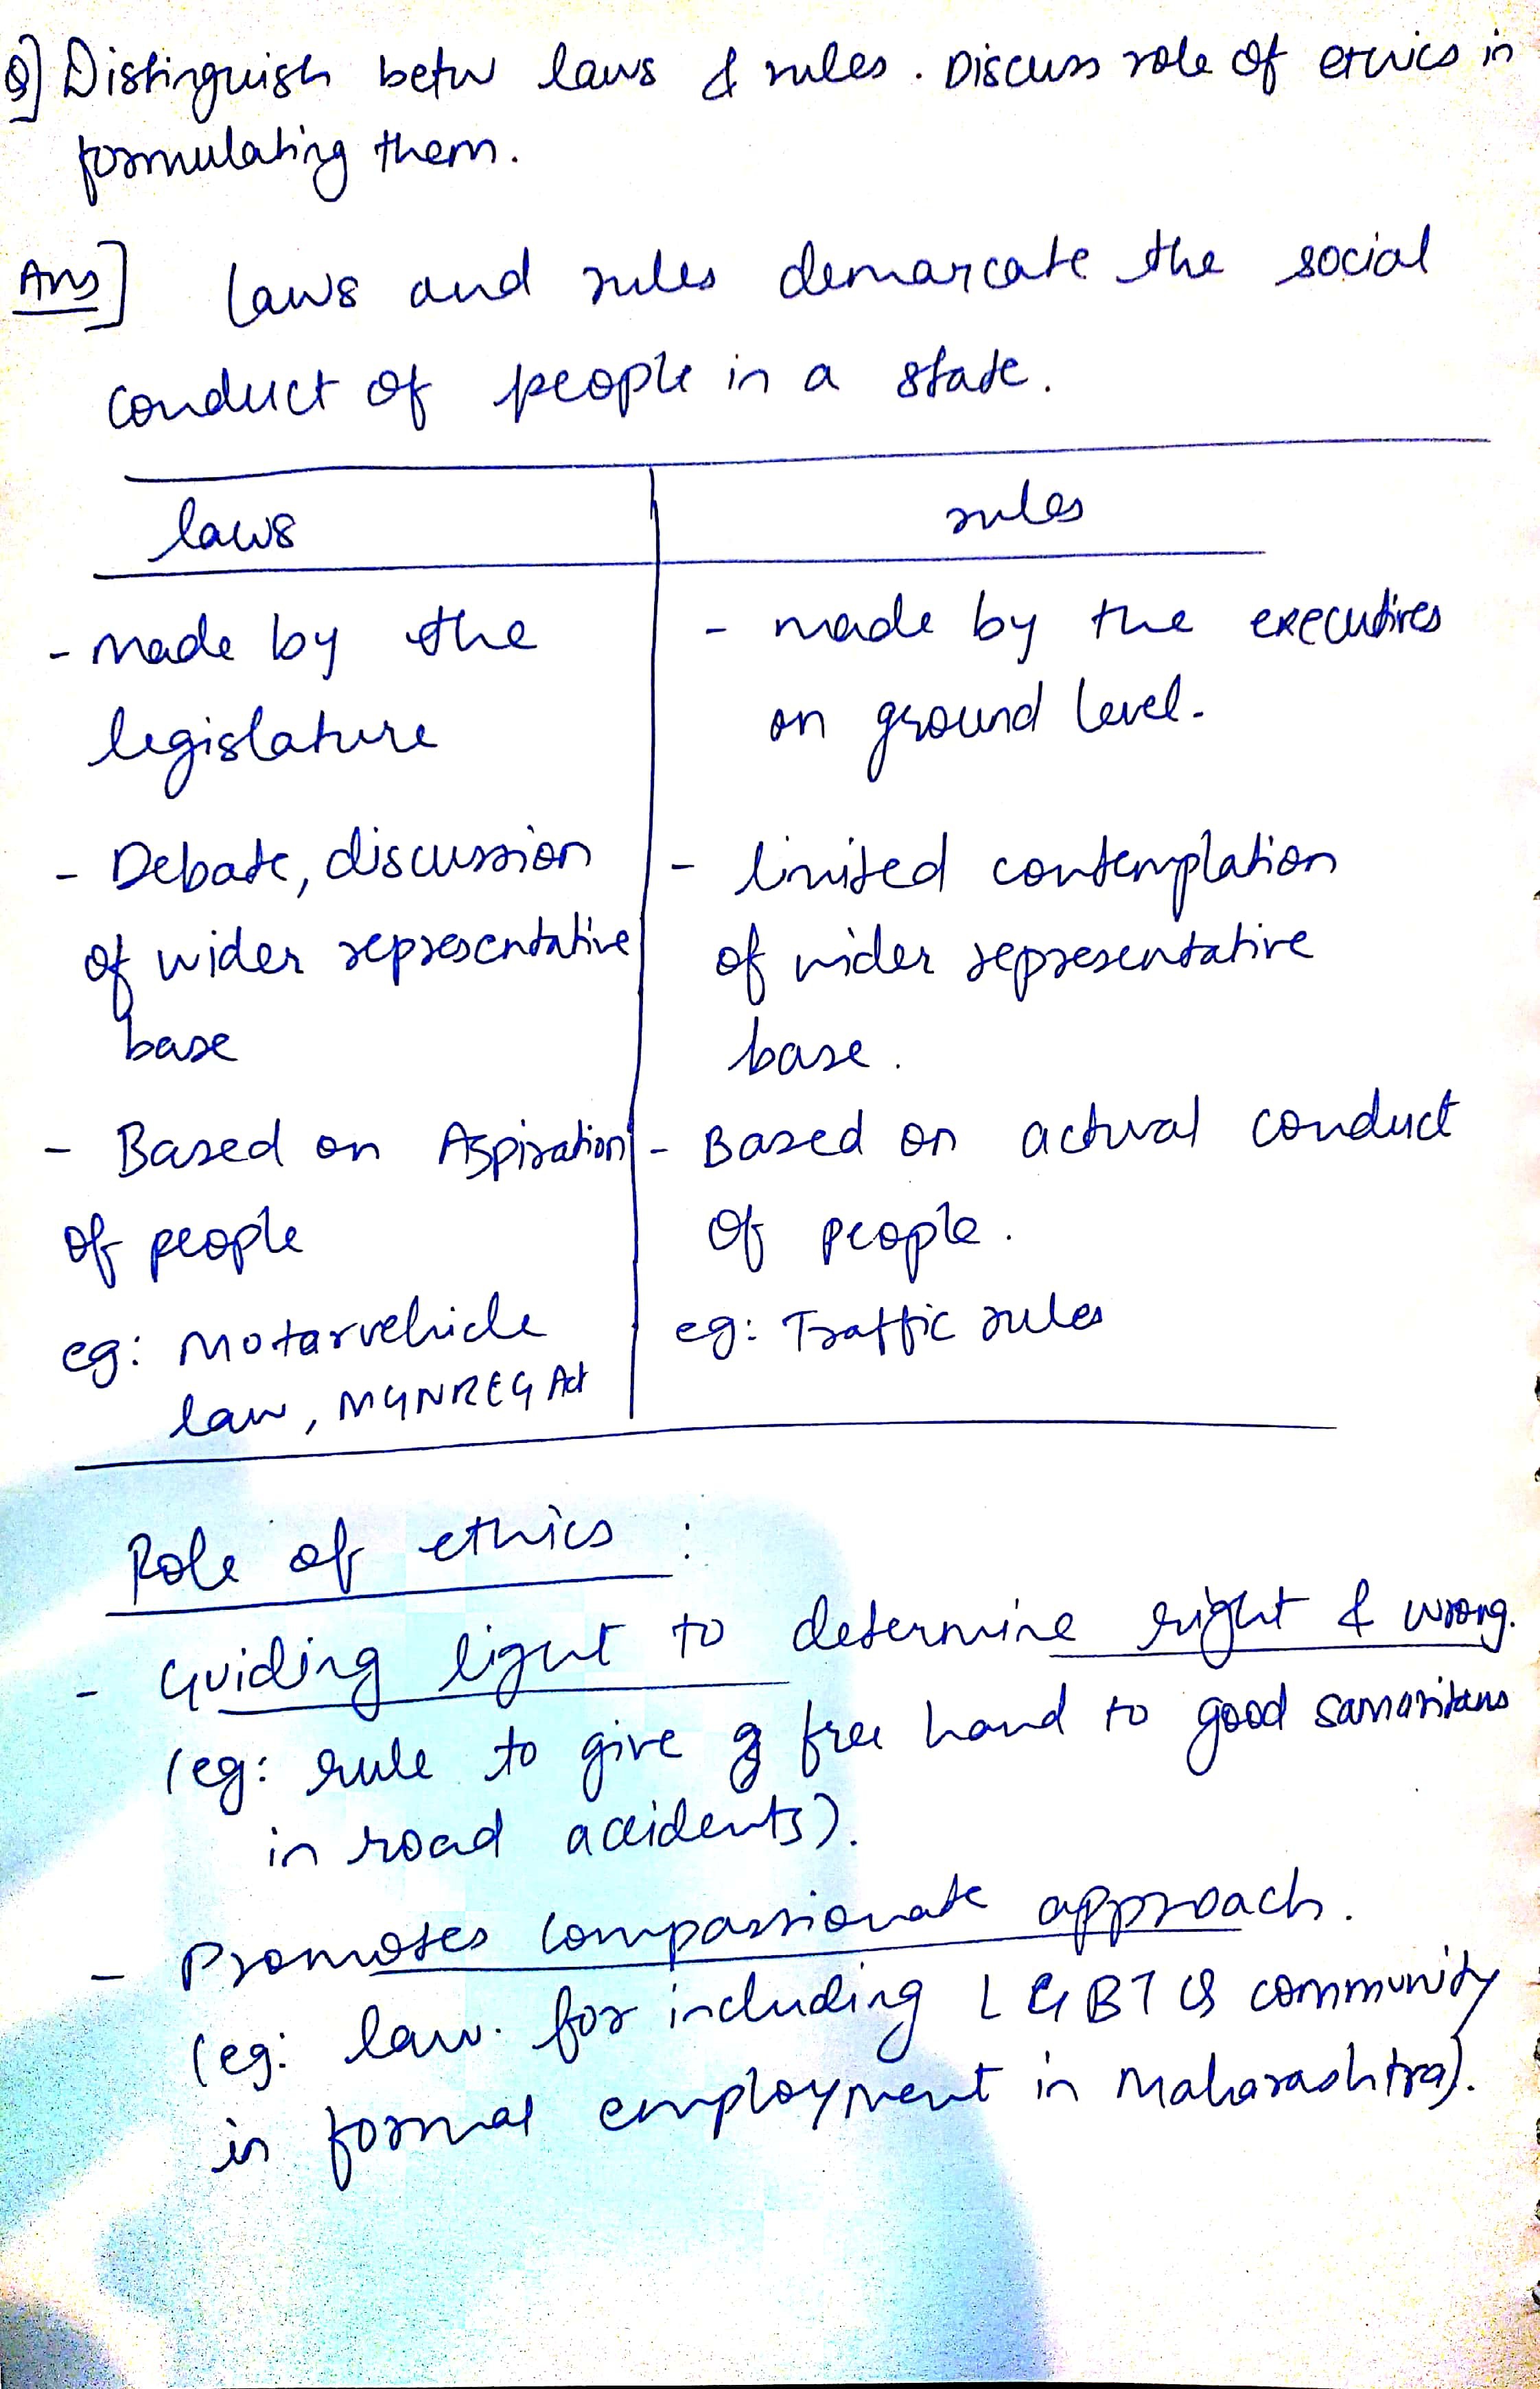 Q] Distinguish betw laws & rules. Discuss role of ethics in
formulating them.
Ans] Laws and rules demarcate the social
conduct of people in a state.
laws
rules
- made by the
legislature
- made by the executives
on ground level.
- Debate, discussion
of wider representative
base
- limited contemplation
of wider representative
base.
- Based on Aspiration
of people
- Based on actual conduct
of people.
eg: Motorvehicle
law, MGNREG Act
eg: Traffic rules
Role of ethics :
- Guiding light to determine right & wrong.
(eg: rule to give free hand to good samaritans
in road accidents).
- Promotes compassionate approach.
(eg: law. for including LGBTQ community
in formal employment in Maharashtra).